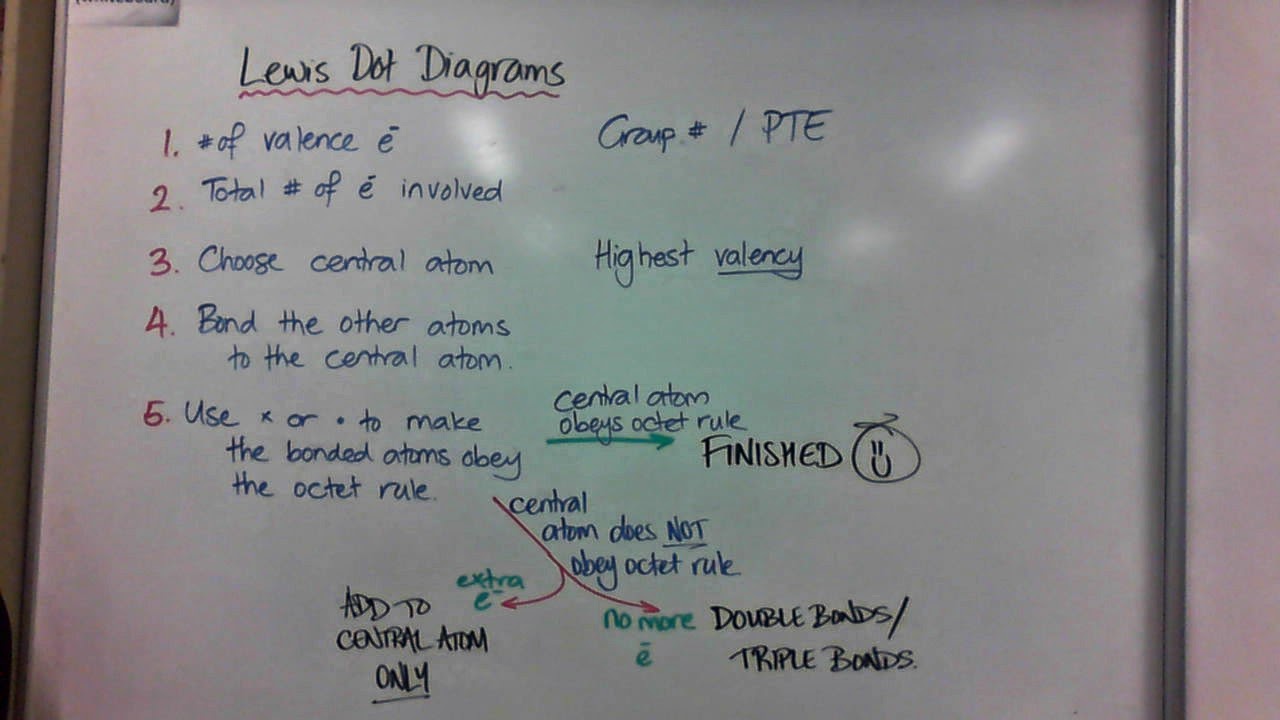 (whiteboard)
Lewis Dot Diagrams
1. # of valence ē Group # / PTE
2. Total # of ē involved
3. Choose central atom Highest valency
4. Bond the other atoms
to the central atom.
5. Use × or • to make
the bonded atoms obey
the octet rule.
central atom
obeys octet rule
FINISHED
central
atom does NOT
obey octet rule
extra
e⁻
ADD TO
CENTRAL ATOM
ONLY
no more
ē
DOUBLE BONDS/
TRIPLE BONDS.